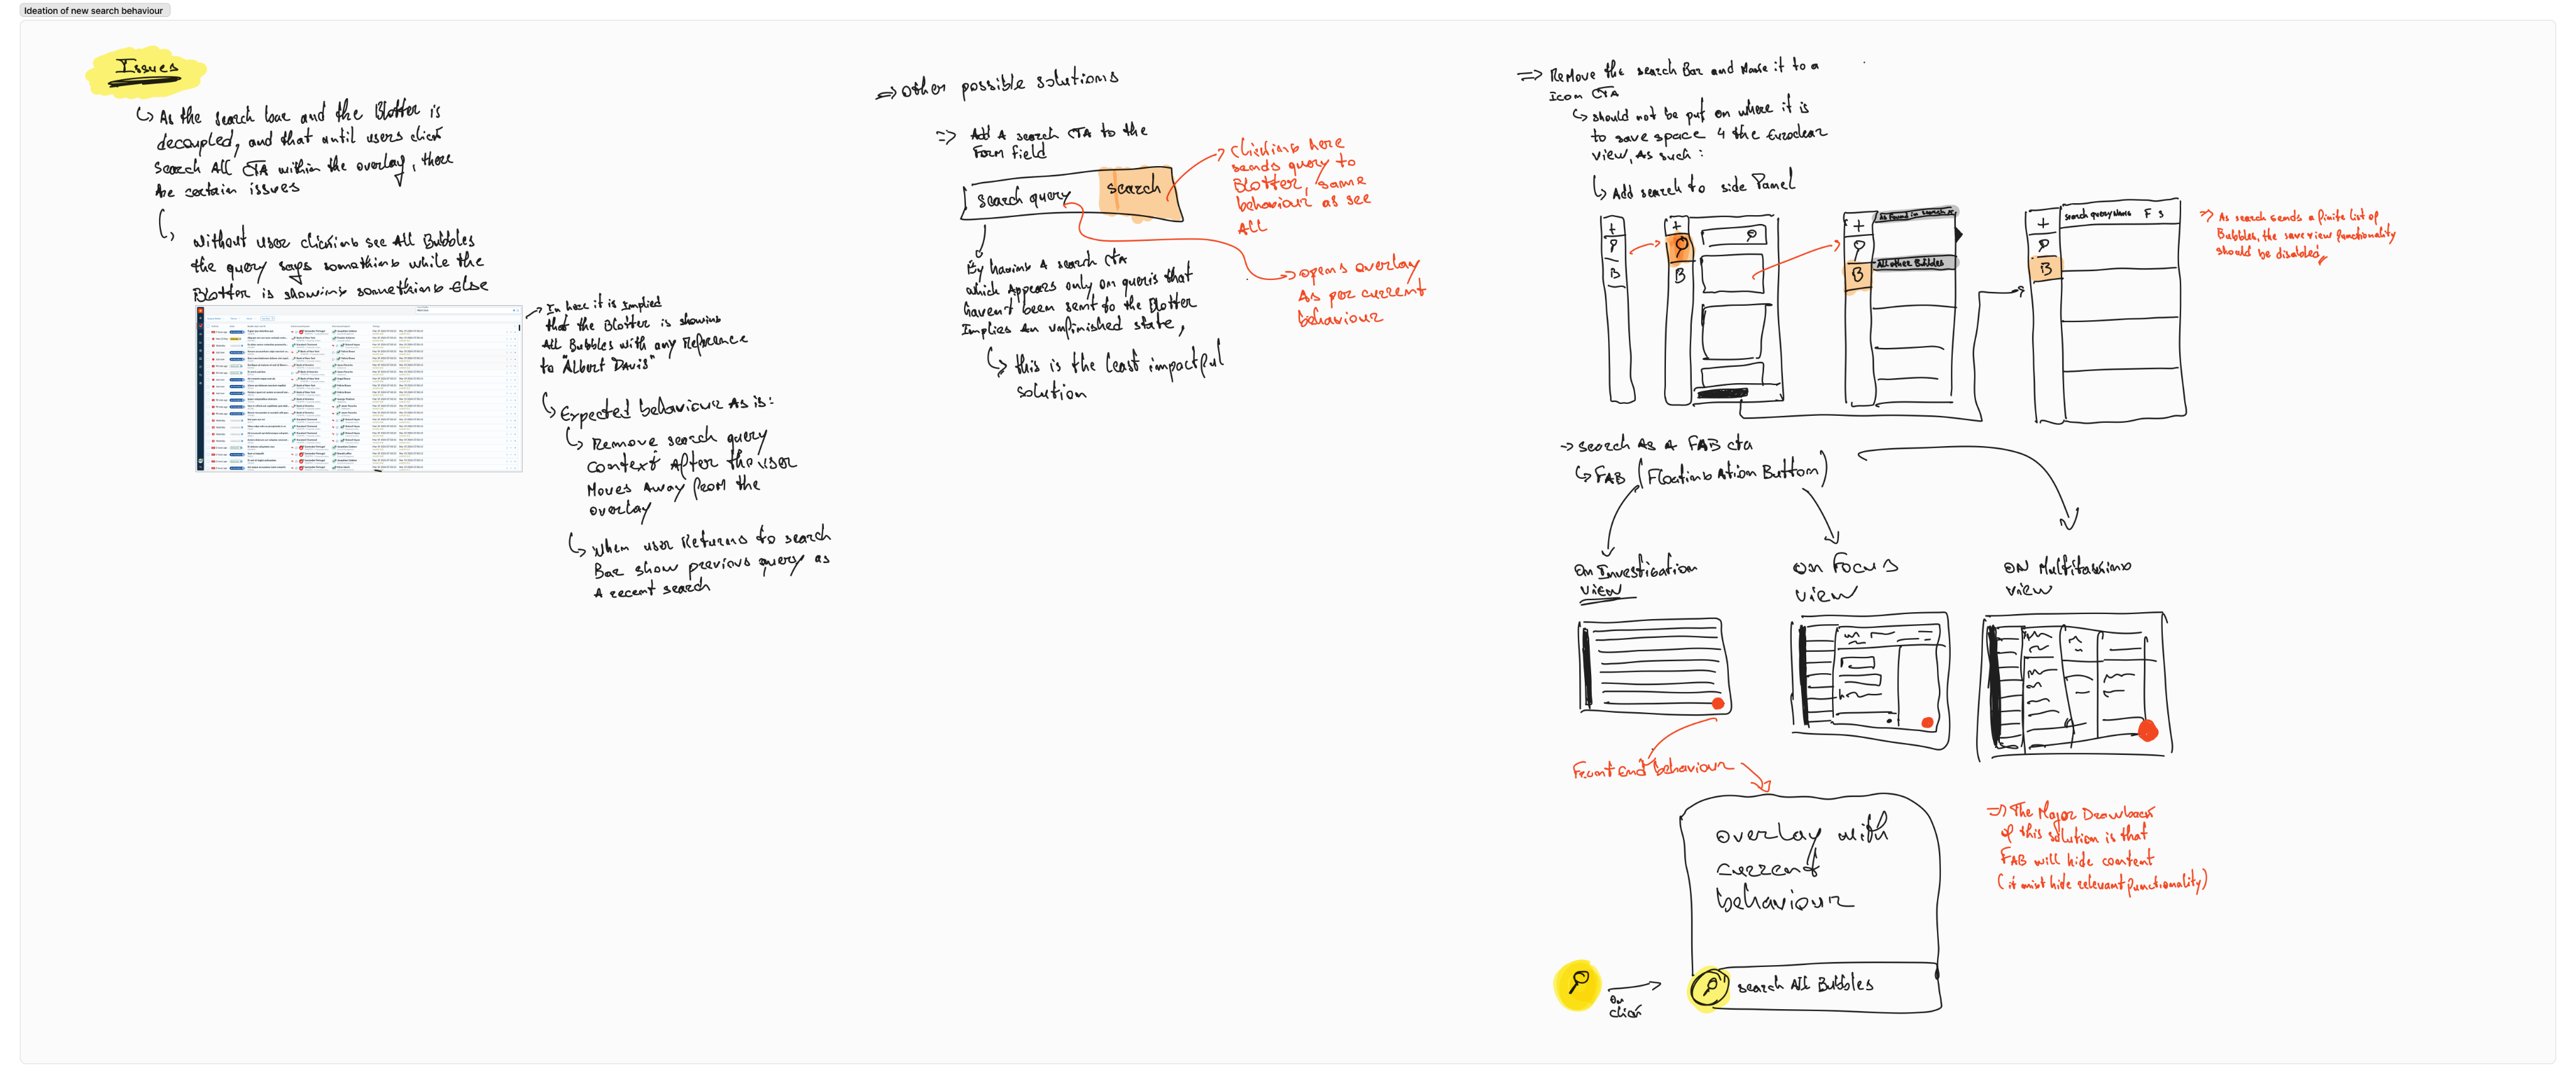 Ideation of new search behaviour
Issues
As the search bar and the Blotter is
decoupled, and that until users click
search All CTA within the overlay, there
are certain issues
without user clicking see All Bubbles
the query says something while the
Blotter is showing something else
In here it is implied
that the Blotter is showing
All Bubbles with any Reference
to "Albert Davis"
Expected behaviour As is:
Remove search query
context After the user
Moves Away from the
overlay
When user Returns to search
Bar show previous query as
A recent search
=> other possible solutions
=> Add A search CTA to the
Form field
search query
search
Clicking here
sends query to
Blotter, same
behaviour as see
All
By having A search cta
which Appears only on queris that
haven't been sent to the Blotter
Implies An unfinished state,
this is the least impactful
solution
opens overlay
As per current
behaviour
=> Remove the search Bar and Make it to a
Icon CTA
should not be put on where it is
to save space 4 the Euroclear
view, As such:
Add search to side Panel
+
B
+
B
+
B
As Found in search
All other Bubbles
+
B
search query name F S
=> As search sends a finite list of
Bubbles, the save view functionality
should be disabled
-> search As A FAB cta
FAB (Floating Ation Button)
On Investigation
view
On Focus
view
ON Multitasking
view
Front End behaviour
overlay with
current
behaviour
search All Bubbles
On
click
=> The Major Drawback
of this solution is that
FAB will hide content
(it might hide relevant functionality)